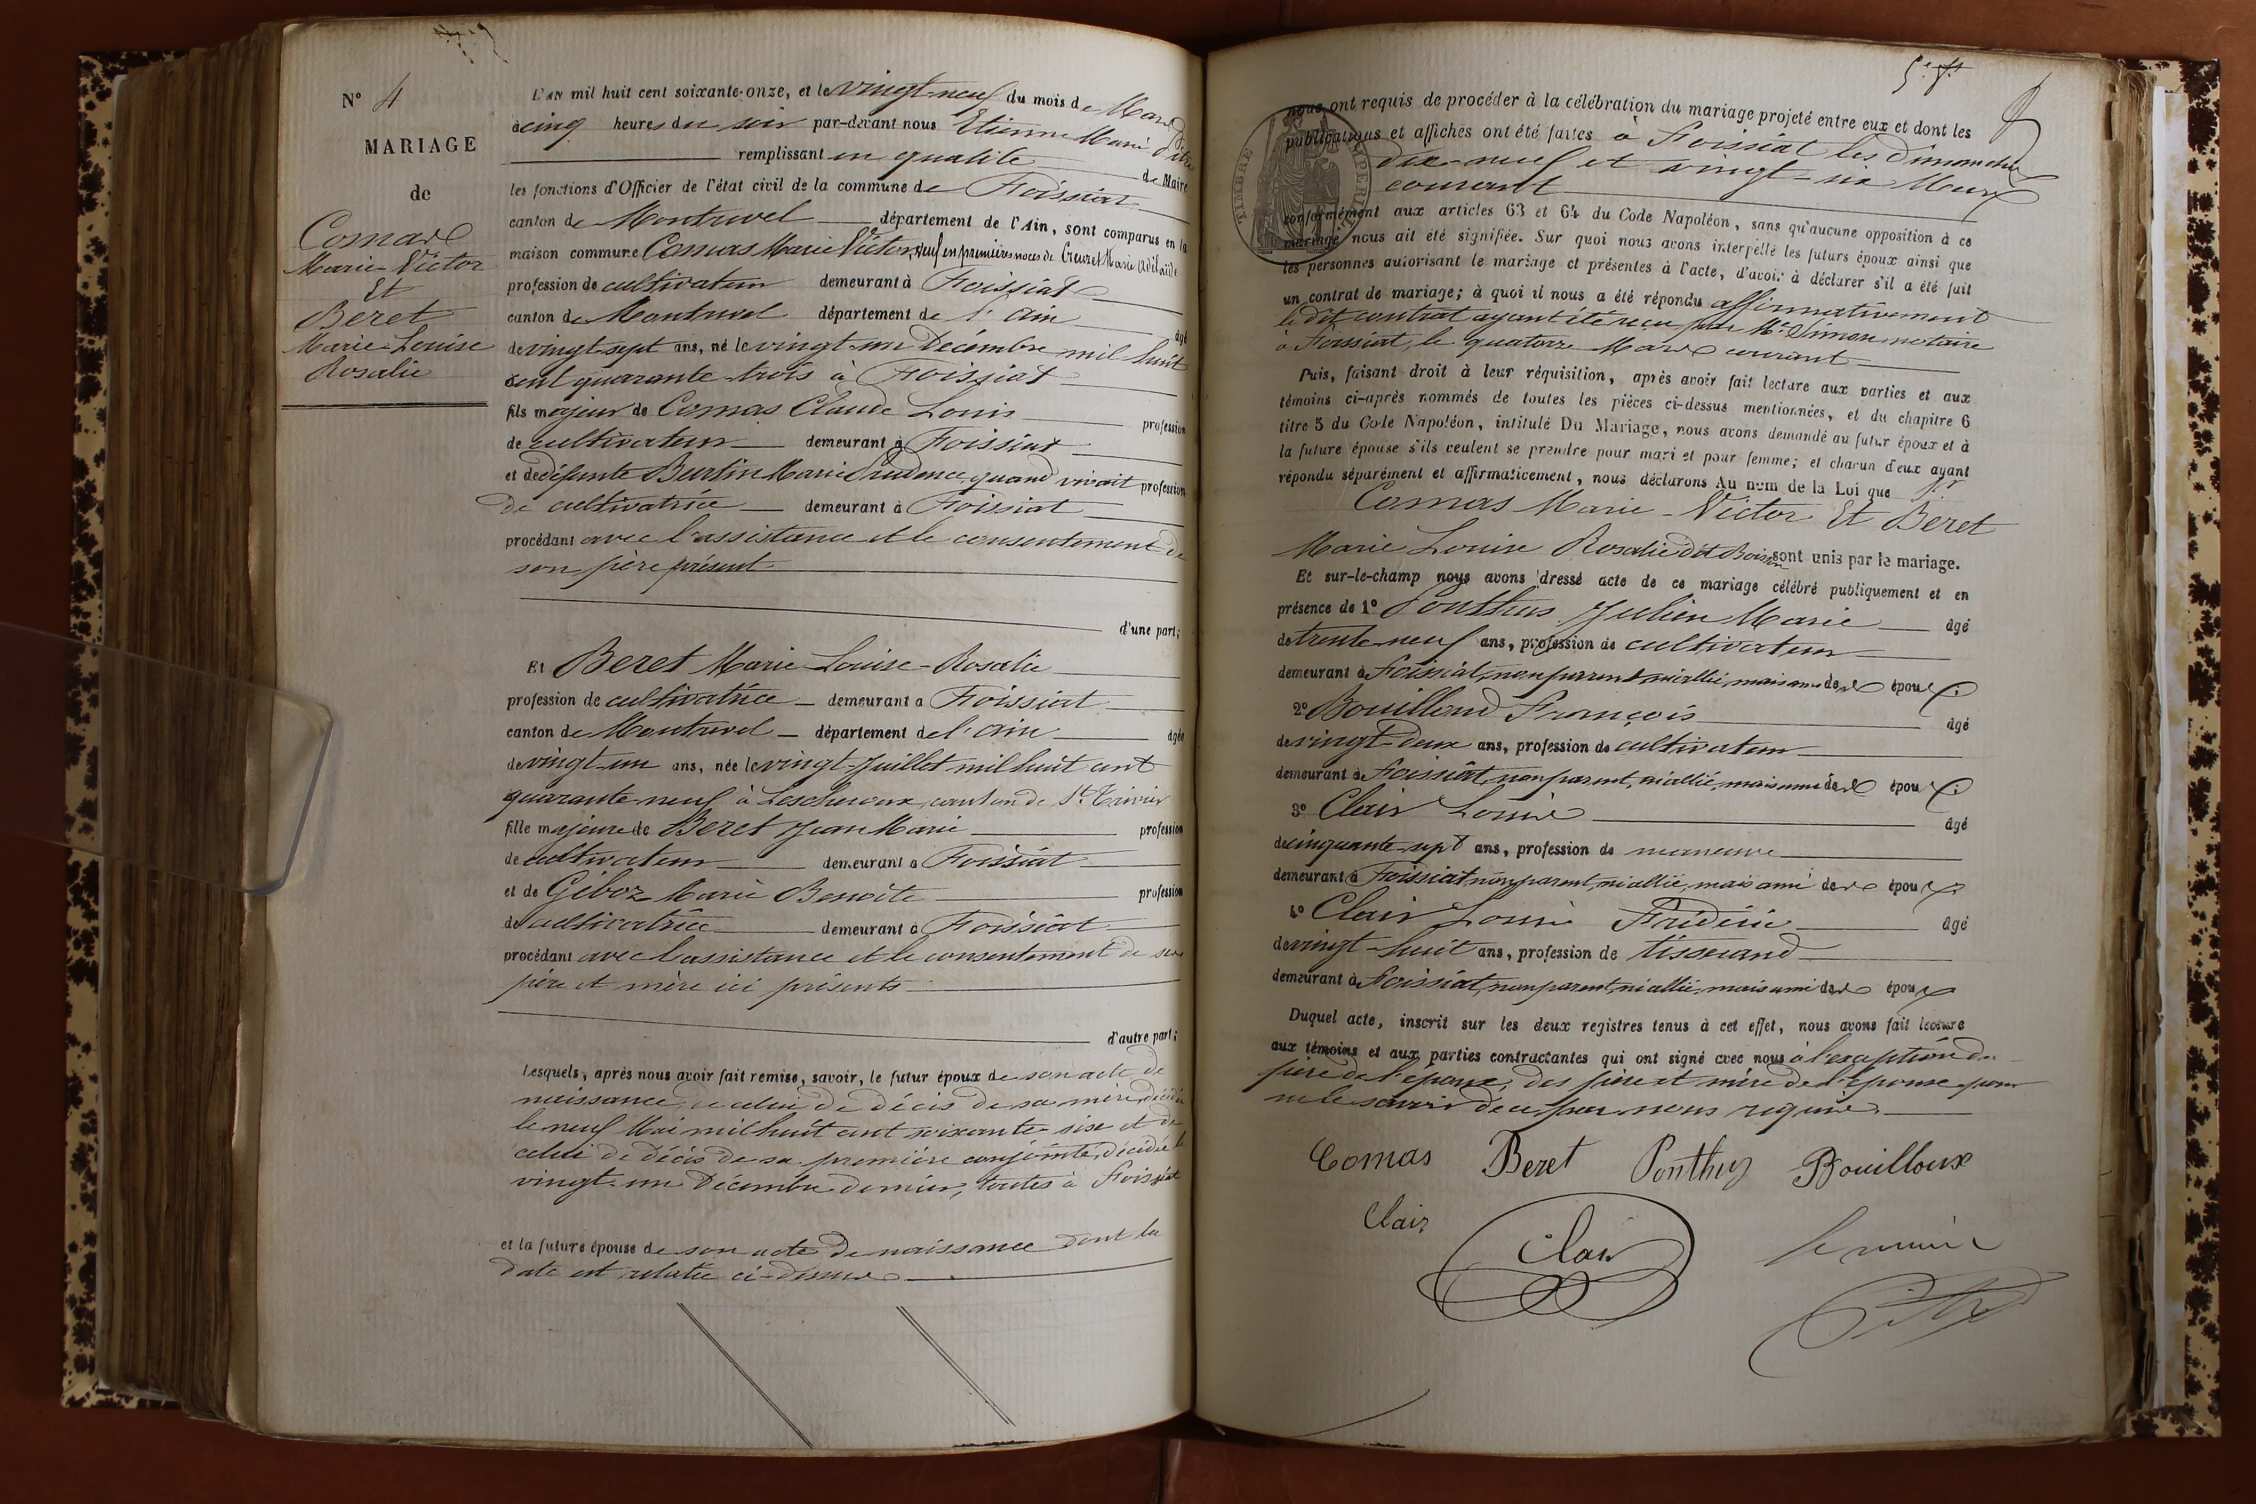 N° 4
MARIAGE
de
Comas
Marie-Victor
Et
Beret
Marie-Louise
Rosalie
L'AN mil huit cent soixante-onze, et le vingt-neuf du mois de Mars
à cinq heures du soir par-devant nous Etienne Marie
remplissant en qualité de Maire
les fonctions d'Officier de l'état civil de la commune de Foissiat
canton de Montrevel département de l'Ain, sont comparus en la
maison commune Comas Marie Victor, veuf en premières noces de Creuzet Marie Adélaïde
profession de cultivateur demeurant à Foissiat
canton de Montrevel département de l'Ain âgé
de vingt-sept ans, né le vingt-un Décembre mil huit
cent quarante trois à Foissiat
fils majeur de Comas Claude Louis profession
de cultivateur demeurant à Foissiat
et de défunte Burtin Marie Prudence, quand vivait profession
de cultivatrice demeurant à Foissiat
procédant avec l'assistance et le consentement de
son père présent
d'une part;
Et Beret Marie-Louise-Rosalie
profession de cultivatrice demeurant à Foissiat
canton de Montrevel département de l'Ain âgée
de vingt-un ans, née le vingt-Juillet mil huit cent
quarante-neuf à Lescheroux, canton de St Trivier
fille majeure de Beret Jean Marie profession
de cultivateur demeurant à Foissiat
et de Géboz Marie Benoîte profession
de cultivatrice demeurant à Foissiat
procédant avec l'assistance et le consentement de ses
père et mère ici présents
d'autre part;
Lesquels, après nous avoir fait remise, savoir, le futur époux de son acte de
naissance, de celui de décès de sa mère, décédée
le neuf Mai mil huit cent soixante-six et de
celui de décès de sa première conjointe, décédée le
vingt-un Décembre dernier, toutes à Foissiat
et la future épouse de son acte de naissance dont la
date est relatée ci-dessus
5e ft
nous ont requis de procéder à la célébration du mariage projeté entre eux et dont les
publications et affiches ont été faites à Foissiat les Dimanches
dix-neuf et vingt-six Mars
courant
TIMBRE IMPERIAL
conformément aux articles 63 et 64 du Code Napoléon, sans qu'aucune opposition à ce
mariage nous ait été signifiée. Sur quoi nous avons interpellé les futurs époux ainsi que
les personnes autorisant le mariage et présentes à l'acte, d'avoir à déclarer s'il a été fait
un contrat de mariage; à quoi il nous a été répondu affirmativement
le dit contrat ayant été reçu par Me Simon, notaire
à Foissiat, le quatorze Mars courant
Puis, faisant droit à leur réquisition, après avoir fait lecture aux parties et aux
témoins ci-après nommés de toutes les pièces ci-dessus mentionnées, et du chapitre 6
titre 5 du Code Napoléon, intitulé Du Mariage, nous avons demandé au futur époux et à
la future épouse s'ils veulent se prendre pour mari et pour femme; et chacun d'eux ayant
répondu séparément et affirmativement, nous déclarons Au nom de la Loi que
Comas Marie-Victor Et Beret
Marie Louise Rosalie sont unis par le mariage.
Et sur-le-champ nous avons dressé acte de ce mariage célébré publiquement et en
présence de 1° Ponthus Julien Marie âgé
de trente-neuf ans, profession de cultivateur
demeurant à Foissiat, non parent, ni allié, mais ami des époux.
2° Bouilloud François âgé
de vingt-deux ans, profession de cultivateur
demeurant à Foissiat, non parent, ni allié, mais ami des époux.
3° Clair Louis âgé
de cinquante-sept ans, profession de manœuvre
demeurant à Foissiat, non parent, ni allié, mais ami des époux
4° Clair Louis Frédéric âgé
de vingt-huit ans, profession de tisserand
demeurant à Foissiat, non parent, ni allié, mais ami des époux
Duquel acte, inscrit sur les deux registres tenus à cet effet, nous avons fait lecture
aux témoins et aux parties contractantes qui ont signé avec nous à l'exception du
père de l'époux, des père et mère de l'épouse pour
ne le savoir de ce par nous requis.
Comas Beret Ponthus Bouilloux
Clair
Clair
le maire